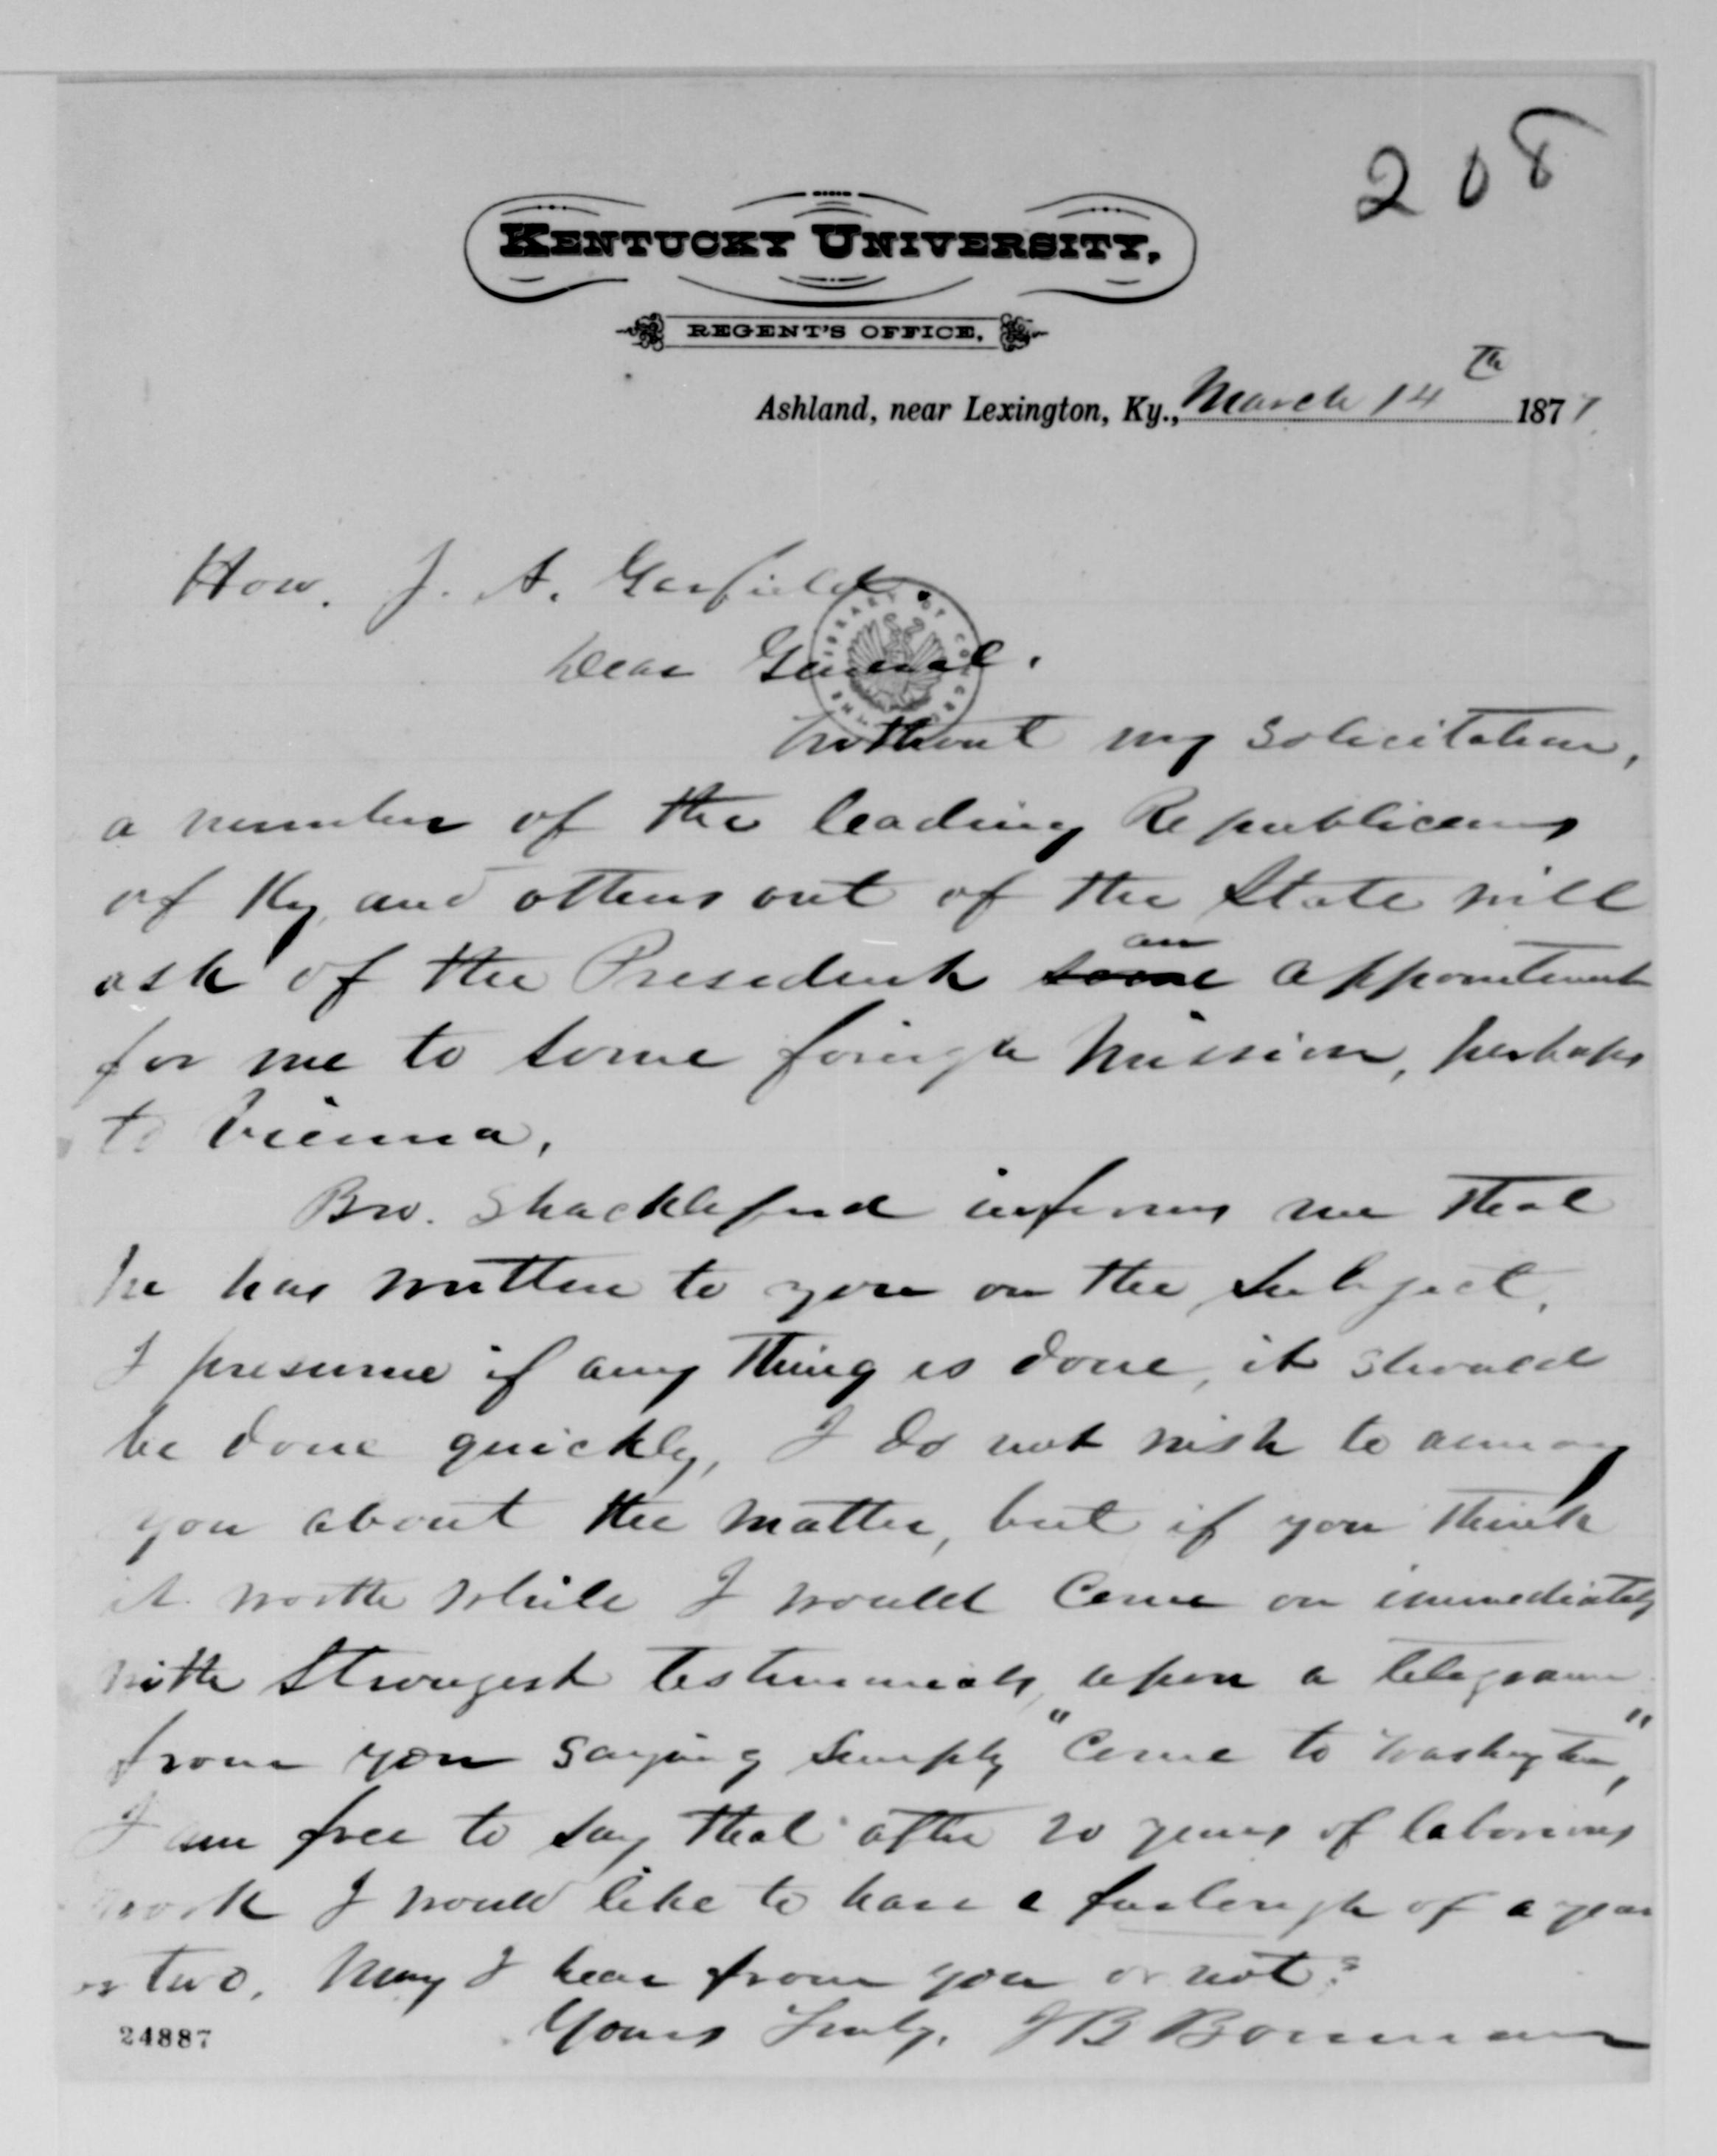 208
KENTUCKY UNIVERSITY,
REGENT'S OFFICE.
Ashland, near Lexington, Ky., March 14th 1877.
Hon. J. A. Garfield.
Dear General.
Without my solicitation,
a number of the leading Republicans
of Ky, and others out of the State will
ask of the President some an appointment
for me to some foreign mission, perhaps
to Vienna.
Bro. Shackleford informs me that
he has written to you on the subject.
I presume if any thing is done, it should
be done quickly, I do not wish to annoy
you about the matter, but if you think
it worth while I would come on immediately
with strongest testimonials, upon a telegram
from you saying simply "Come to Washington,"
I am free to say that after 20 years of laborious
work I would like to have a furlough of a year
or two. May I hear from you or not?
Yours Truly, J B Bowman
24887